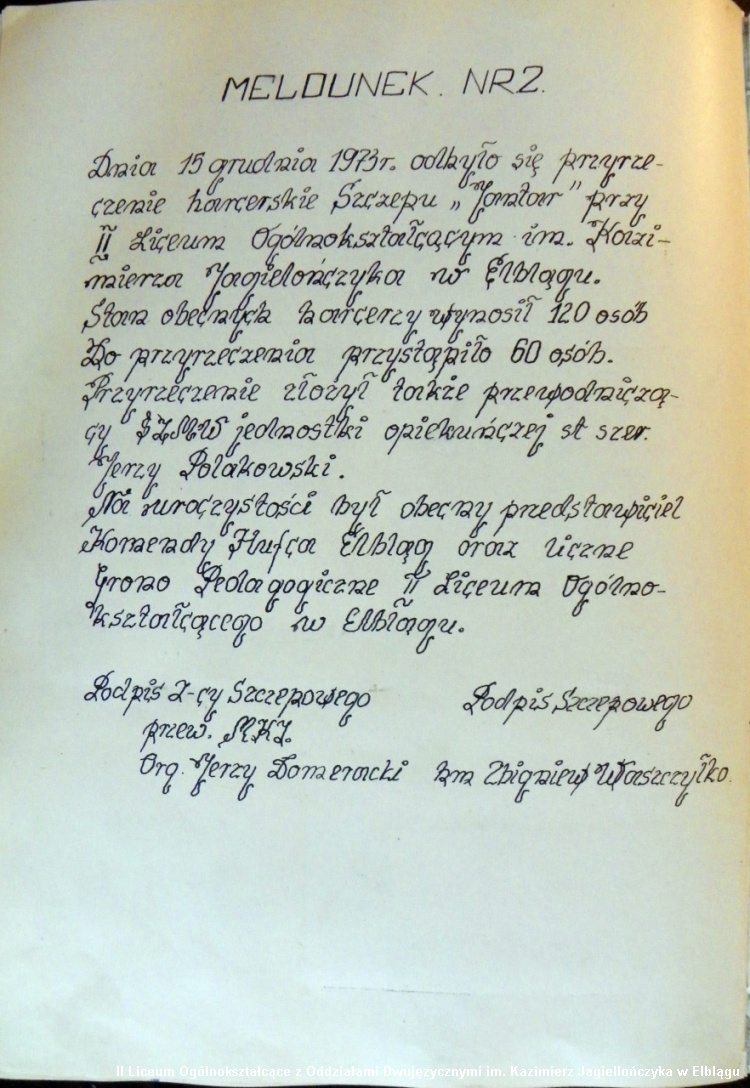 MELDUNEK. NR2.
Dnia 15 grudnia 1973r. odbyło się przyrze-
czenie harcerskie Szczepu „Jantar" przy
II Liceum Ogólnokształcącym im. Kazi-
mierza Jagielończyka w Elblągu.
Stan obecnych harcerzy wynosił 120 osób
Do przyrzeczenia przystąpiło 60 osób.
Przyrzeczenie złożył także przewodniczą-
cy SZMW jednostki opiekuńczej st szer.
Jerzy Polakowski.
Na uroczystości był obecny przedstawiciel
Komendy Hufca Elbląg oraz liczne
Grono Pedagogiczne II Liceum Ogólno-
kształcącego w Elblągu.
Podpis Z-cy Szczepowego
przew. MKI.
Org. Jerzy Domeracki
Podpis Szczepowego
hm Zbigniew Waszczyłko.
II Liceum Ogólnokształcące z Oddziałami Dwujęzycznymi im. Kazimierz Jagiellończyka w Elblągu